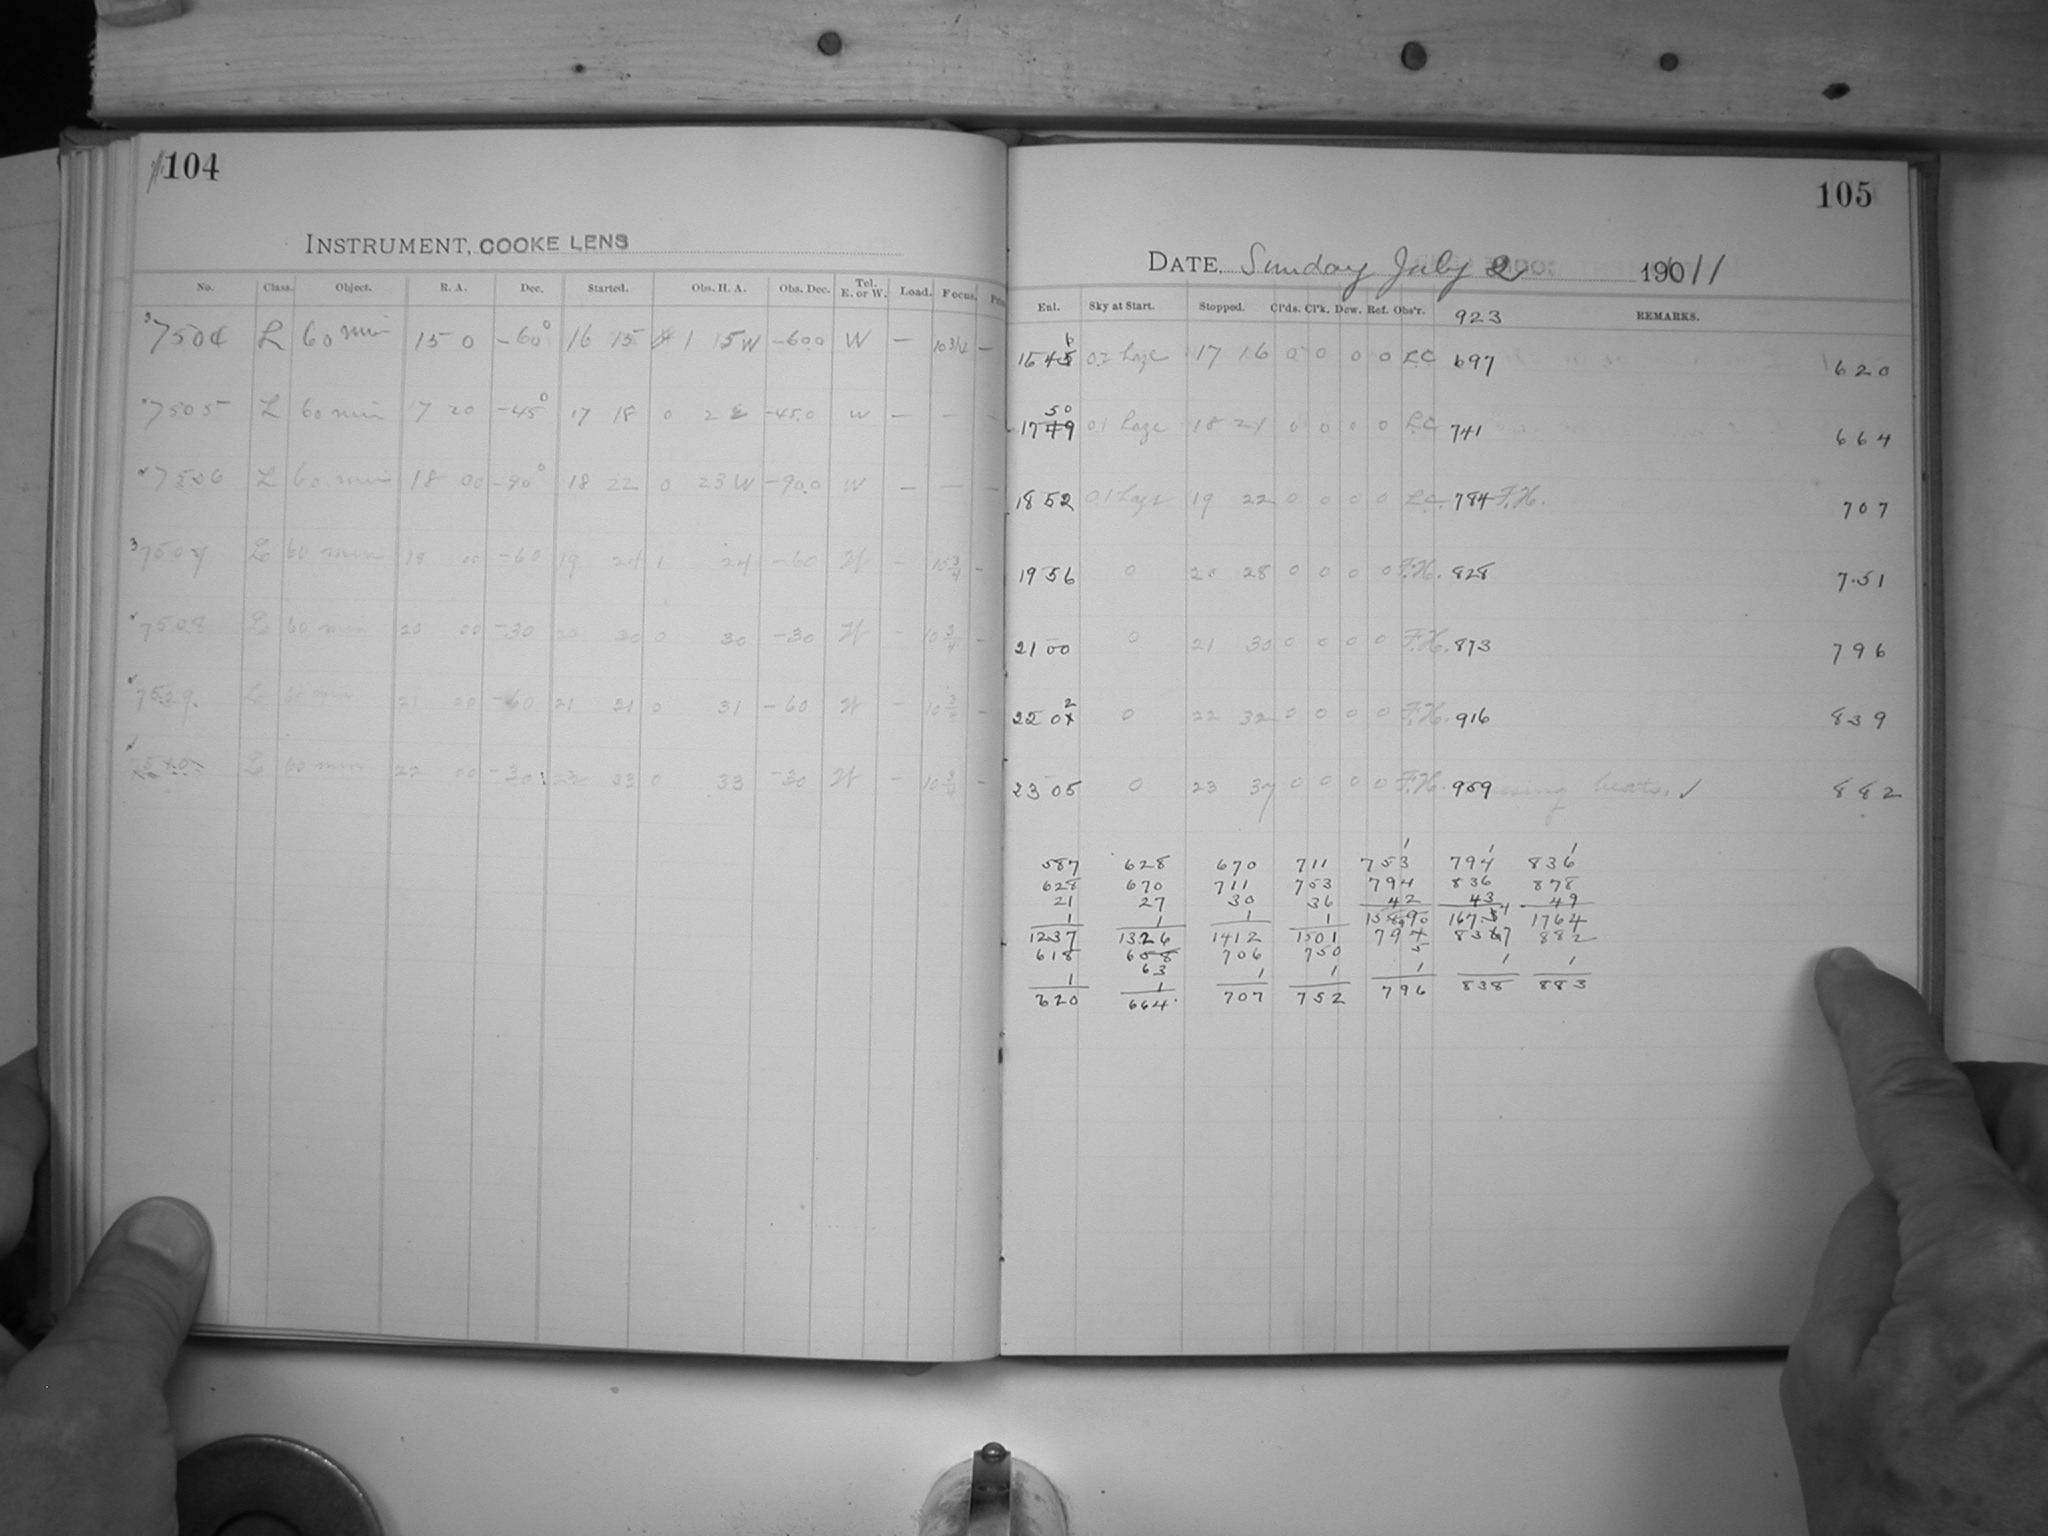 104
INSTRUMENT, COOKE LENS
No. Class. Object. R. A. Dec. Started. Obs. H. A. Obs. Dec. Tel. E. or W. Load. Focus.
7504 L 60 min 15 0 -60° 16 15 1 15 W -600 W — 10 3/4 —
7505 L 60 min 17 20 -45° 17 18 0 2 -45.0 W — — —
7506 L 60 min 18 00 -90° 18 22 0 23 W -90.0 W — — —
7507 L 60 min 18 00 -60 19 24 1 24 -60 W - 10 3/4 -
7508 L 60 min 20 00 -30 20 30 0 30 -30 W - 10 3/4 -
L 60 min 21 00 -60 21 31 0 31 -60 W - 10 3/4 -
L 60 min 22 00 -30 22 33 0 33 -30 W - 10 3/4 -
105
DATE, Sunday July 2 19011
Enl. Sky at Start. Stopped. Cl'ds. Cl'k. Dew. Ref. Obs'r. 923 REMARKS.
16 45 6 0.2 haze 17 16 0 0 0 0 L.C 697 620
17 49 50 0.1 haze 18 21 0 0 0 0 L.C 741 664
18 52 0.1 haze 19 22 0 0 0 0 L.C. 784 F.H. 707
19 56 0 20 28 0 0 0 0 F.H. 828 751
21 00 0 21 30 0 0 0 0 F.H. 873 796
22 0 2 0 22 32 0 0 0 0 F.H. 916 839
23 05 0 23 37 0 0 0 0 F.H. 959 beats. ✓ 882
1 1 1
587 628 670 711 753 794 836
628 670 711 753 794 836 878
21 27 30 36 42 43 49
1 1 1 1
1237 1326 1412 1501 1764
618 658 706 750 794 882
63 5
1 1 1 1 1 1 1
620 664 707 752 796 838 883